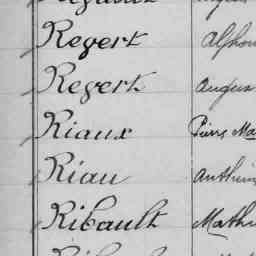 Regert Alphon
Regert Augus
Riaux Pierre Ma
Riau Anthim
Ribault Mathu